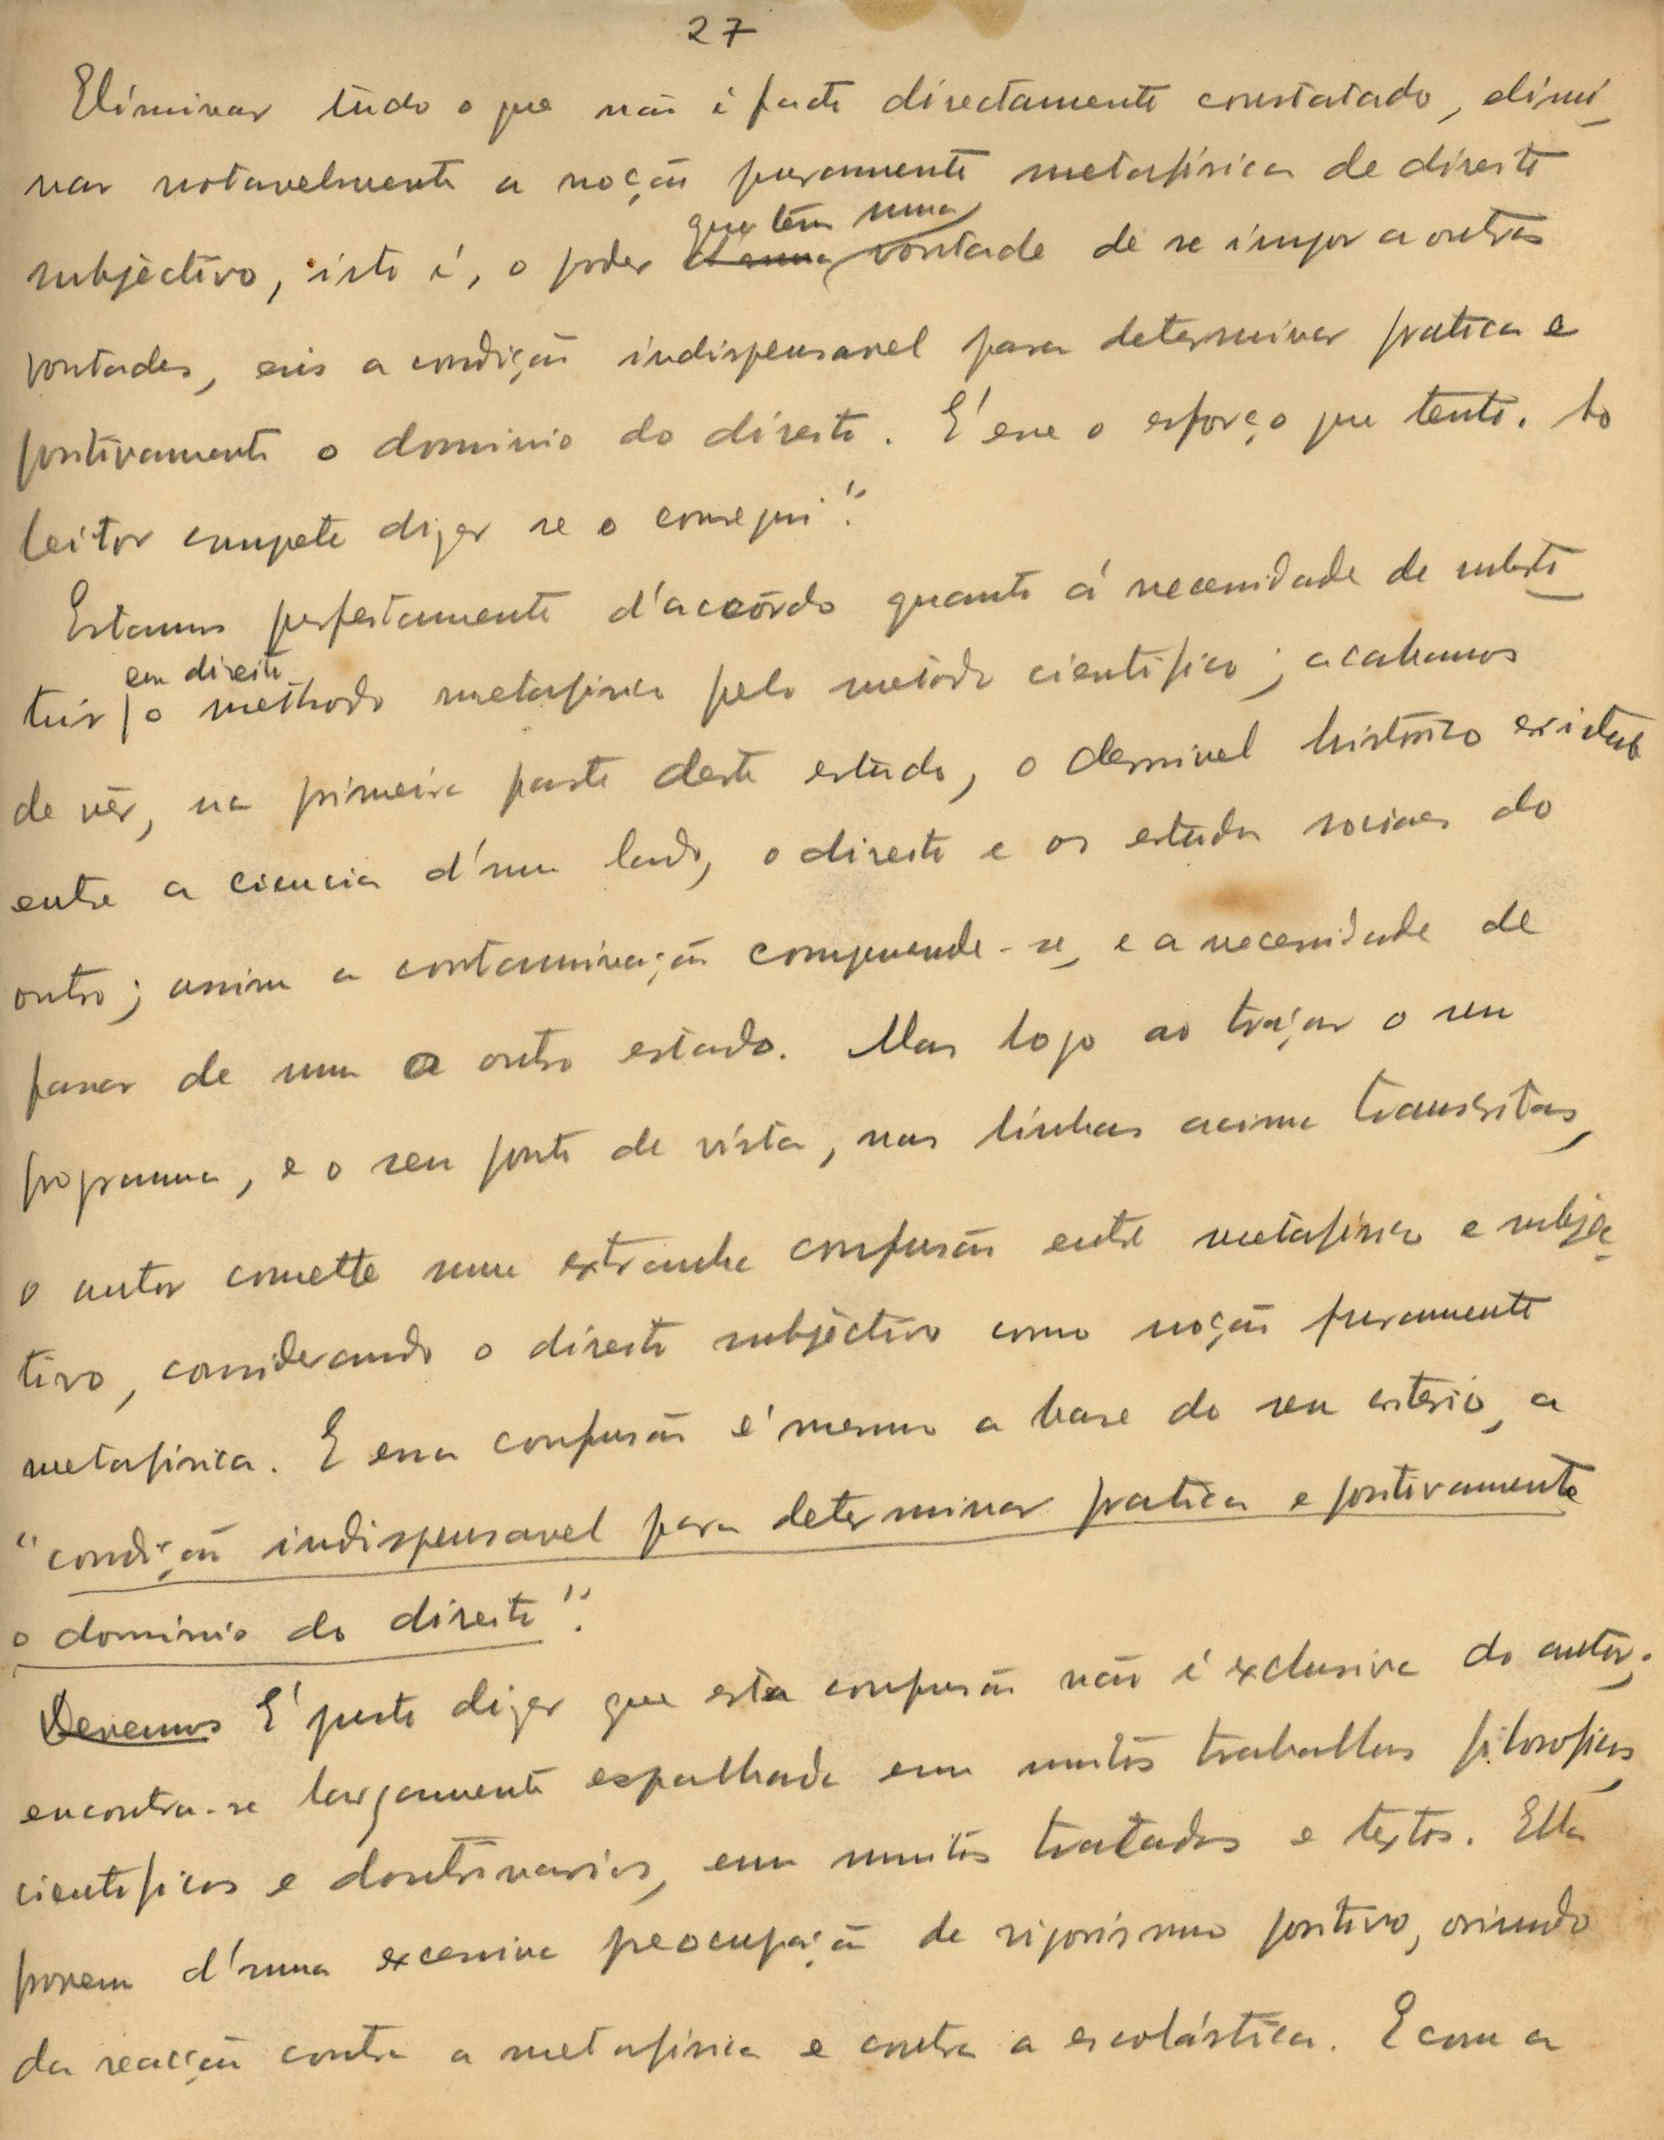 27
Eliminar tudo o que não é facto directamente constatado, elimi-
nar notavelmente a noção puramente metafísica de direito
que tem uma
subjectivo, isto é, o poder d'uma vontade de se impor a outras
vontades, eis a condição indispensavel para determinar pratica e
positivamente o dominio do direito. E' esse o esforço que tento. Ao
leitor compete dizer se o consegui".
Estamos perfeitamente d'accôrdo quanto á necessidade de substi-
em direito
tuir o methodo metafísico pelo metodo cientifico; acabamos
de vêr, na primeira parte deste estudo, o desnivel histórico existente
entre a ciencia d'um lado, o direito e os estudos sociaes do
outro; assim a contaminação compreende-se, e a necessidade de
passar de um a outro estado. Mas logo ao traçar o seu
programma, e o seu ponto de vista, nas linhas acima transcritas,
o autor comette uma extranha confusão entre metafísico e subjec-
tivo, considerando o direito subjectivo como noção puramente
metafísica. E essa confusão é mesmo a base do seu criterio, a
"condição indispensavel para determinar pratica e positivamente
o dominio do direito".
Devemos E' justo dizer que esta confusão não é exclusiva do autor;
encontra-se largamente espalhada em muitos trabalhos filosoficos,
cientificos e doutrinarios, em muitos tratados e textos. Ella
provem d'uma excessiva preocupação de rigorismo positivo, oriundo
da reacção contra a metafísica e contra a escolástica. E com a